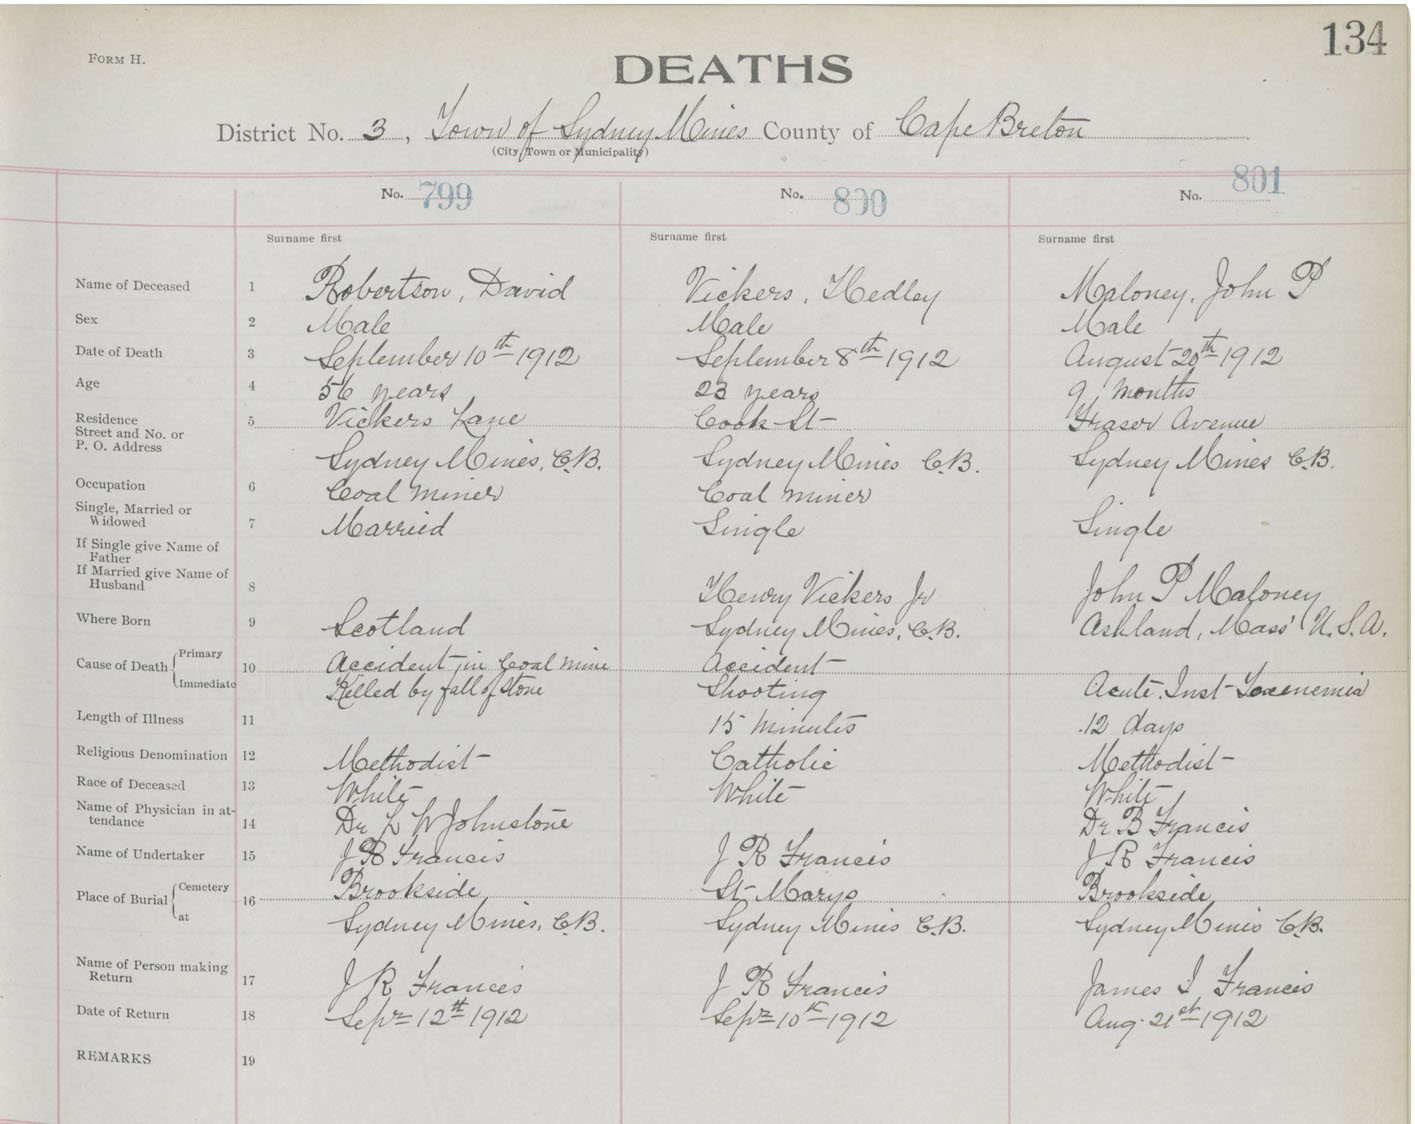 134
FORM H.
DEATHS
District No. 3, Town of Sydney Mines County of Cape Breton
(City, Town or Municipality)
No. 799 No. 800 No. 801
Surname first Surname first Surname first
Name of Deceased 1 Robertson, David Vickers, Hedley Maloney, John P
Sex 2 Male Male Male
Date of Death 3 September 10th 1912 September 8th 1912 August 20th 1912
Age 4 56 years 23 years 9 months
Residence Street and No. or P. O. Address 5 Vickers Lane Cook St Fraser Avenue
Sydney Mines, C.B. Sydney Mines C.B. Sydney Mines C.B.
Occupation 6 Coal miner Coal miner
Single, Married or Widowed 7 Married Single Single
If Single give Name of Father
If Married give Name of Husband 8 Henry Vickers Jr John P Maloney
Where Born 9 Scotland Sydney Mines, C.B. Ashland, Mass' U.S.A.
Cause of Death Primary 10 Accident in Coal Mine Accident
Immediate Killed by fall of stone Shooting Acute Inst
Length of Illness 11 15 minutes 12 days
Religious Denomination 12 Methodist Catholic Methodist
Race of Deceased 13 White White White
Name of Physician in attendance 14 Dr L W Johnstone Dr B Francis
Name of Undertaker 15 J R Francis J R Francis J R Francis
Place of Burial Cemetery 16 Brookside St Marys Brookside
at Sydney Mines, C.B. Sydney Mines C.B. Sydney Mines C.B.
Name of Person making Return 17 J R Francis J R Francis James I Francis
Date of Return 18 Sepr 12th 1912 Sepr 10th 1912 Aug. 21st 1912
REMARKS 19